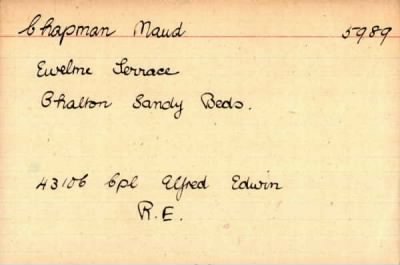 Chapman Maud 5989
Ewelme Terrace
Chalton Sandy Beds.
43106 Cpl Alfred Edwin
R.E.